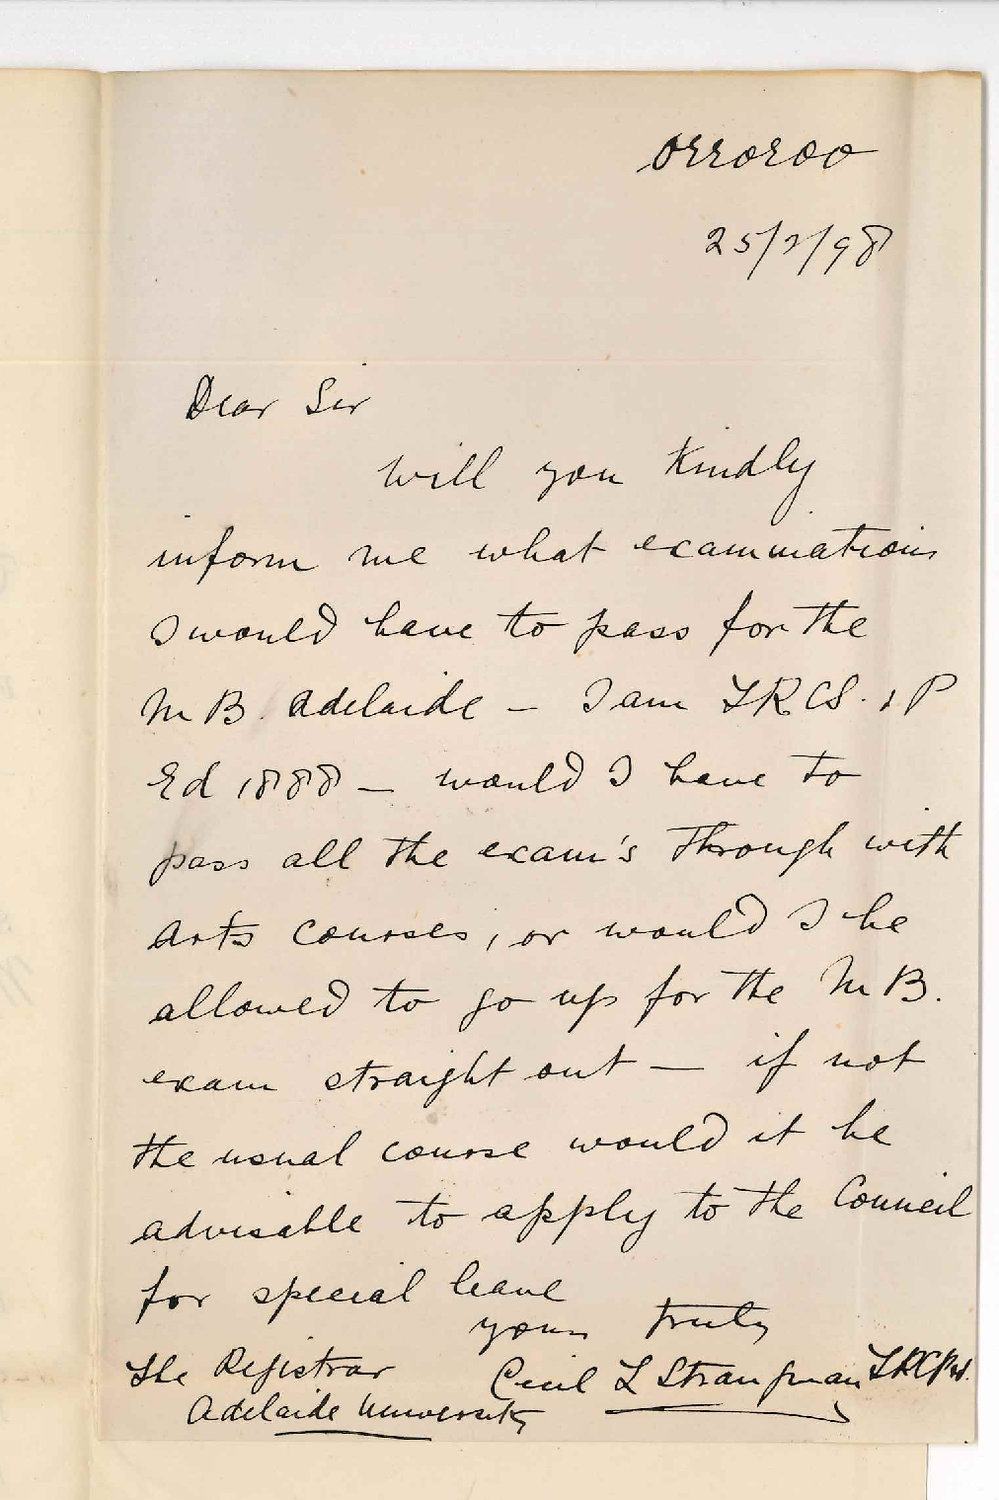 Orroroo
25/2/98
Dear Sir
Will you kindly
inform me what examinations
I would have to pass for the
M B. Adelaide – I am LRCS. & P
Ed 1888 – would I have to
pass all the exam's through with
arts courses, or would I be
allowed to go up for the M B.
exam straight out – if not
the usual course would it be
advisable to apply to the Council
for special leave
yours truly
Cecil L Strangman LRCP
The Registrar
Adelaide University